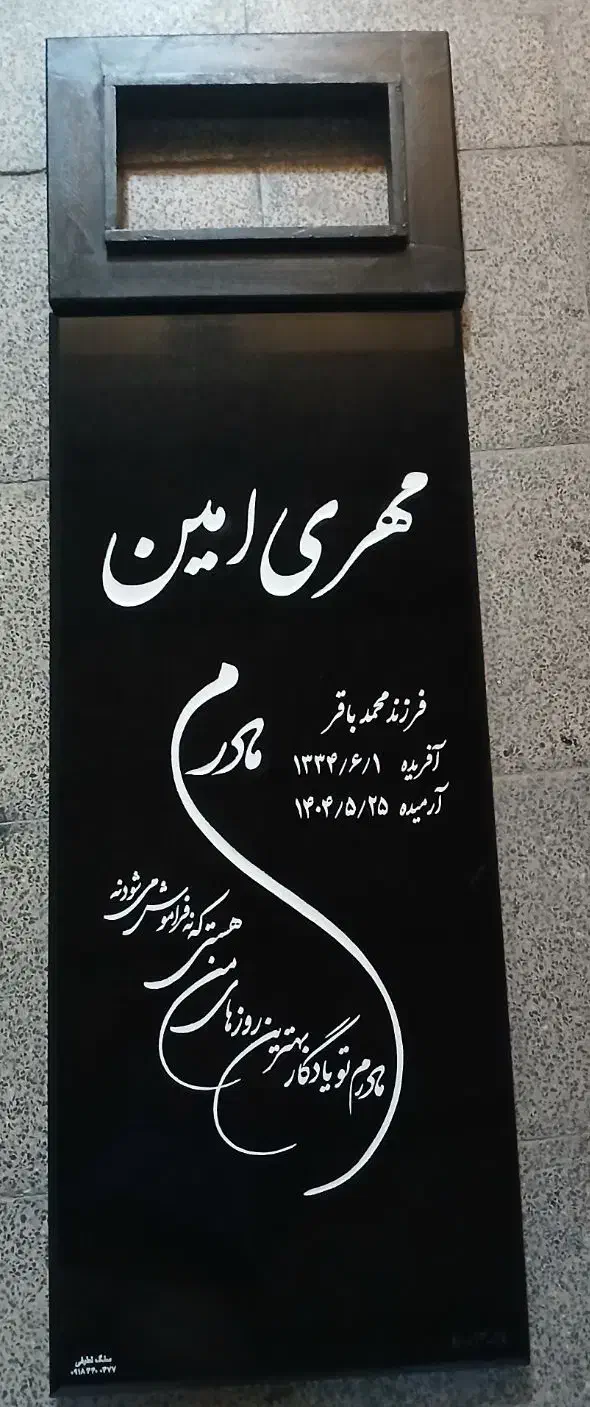 مهری امین
مادرم
فرزند محمد باقر
آفریده ۱۳۳۴/۶/۱
آرمیده ۱۴۰۴/۵/۲۵
مادرم تو یادگار بهترین روزهای من هستی که نه فراموش می شود نه
سنگ لطیفی